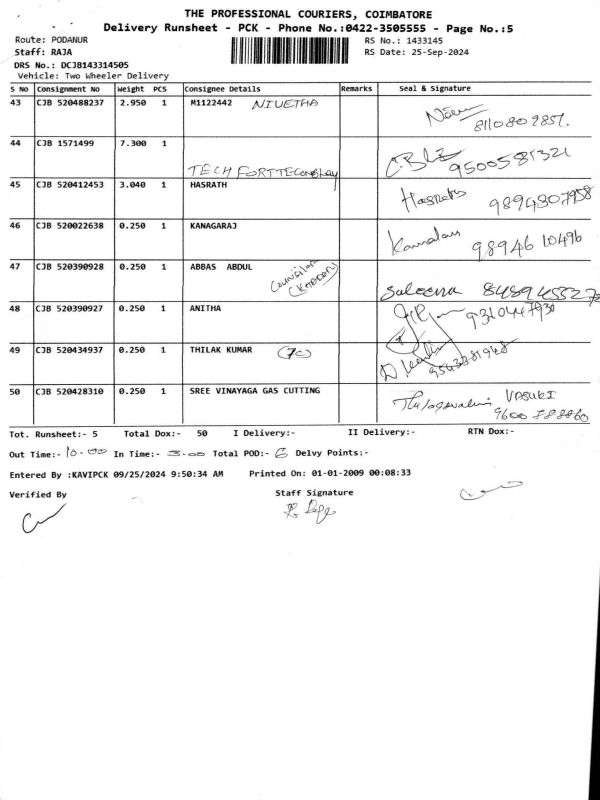 THE PROFESSIONAL COURIERS, COIMBATORE
Delivery Runsheet - PCK - Phone No.:0422-3505555 - Page No.:5
Route: PODANUR RS No.: 1433145
Staff: RAJA RS Date: 25-Sep-2024
DRS No.: DCJB143314505
Vehicle: Two Wheeler Delivery
S No Consignment No Weight PCS Consignee Details Remarks Seal & Signature
43 CJB 520488237 2.950 1 M1122442 NIVETHA
8110802857.
44 CJB 1571499 7.300 1
9500581321
45 CJB 520412453 3.040 1 HASRATH Hasrath
9894307958
46 CJB 520022638 0.250 1 KANAGARAJ
98946 10496
47 CJB 520390928 0.250 1 ABBAS ABDUL
Saleema
48 CJB 520390927 0.250 1 ANITHA
49 CJB 520434937 0.250 1 THILAK KUMAR (70)
50 CJB 520428310 0.250 1 SREE VINAYAGA GAS CUTTING VASUKI
Tot. Runsheet:- 5 Total Dox:- 50 I Delivery:- II Delivery:- RTN Dox:-
Out Time:- 10.00 In Time:- 3.00 Total POD:- 6 Delvy Points:-
Entered By :KAVIPCK 09/25/2024 9:50:34 AM Printed On: 01-01-2009 00:08:33
Verified By Staff Signature